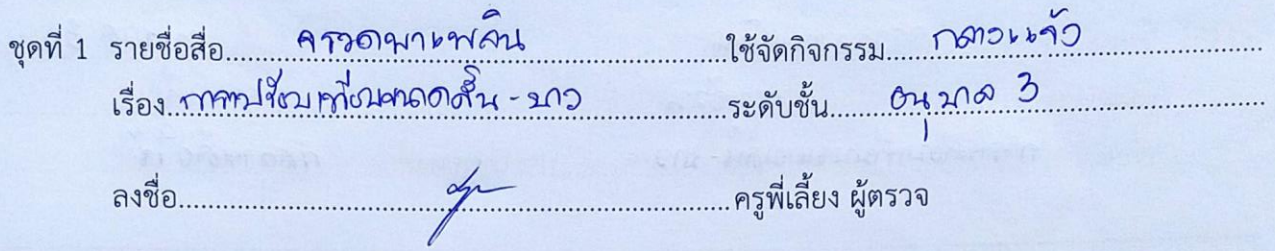 ชุดที่ 1 รายชื่อสื่อ จรวดพาเพลิน ใช้จัดกิจกรรม กลางแจ้ง
เรื่อง การเปรียบเทียบขนาดสั้น - ยาว ระดับชั้น อนุบาล 3
ลงชื่อ ครูพี่เลี้ยง ผู้ตรวจ